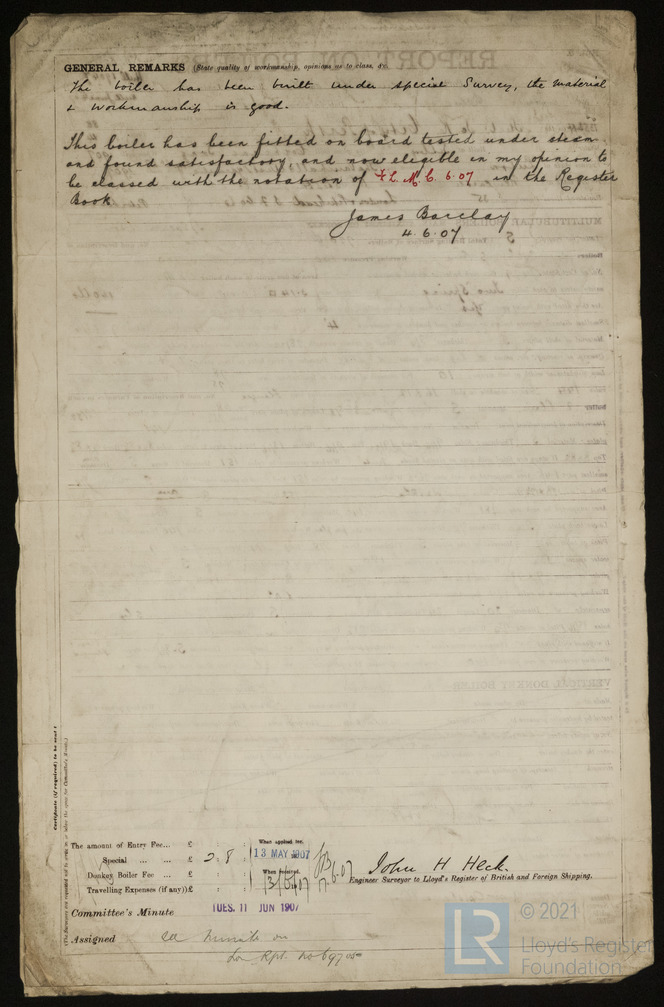 GENERAL REMARKS (State quality of workmanship, opinions as to class, &c.
The boiler has been built under special Survey, the material
& workmanship is good.
This boiler has been fitted on board tested under steam
and found satisfactory, and now eligible in my opinion to
be classed with the notation of L.M.C. 6.07 in the Register
Book
James Barclay
4.6.07
Certificate (if required) to be sent to
The amount of Entry Fee... £ : :
When applied for,
Special ... ... £ 2 : 8 :
13 MAY 1907
Donkey Boiler Fee ... £ : :
When received,
Travelling Expenses (if any) £ : :
John H Heck.
Engineer Surveyor to Lloyd's Register of British and Foreign Shipping.
Committee's Minute
TUES. 11 JUN 1907
Assigned
See Minute on
Lon Rpt. No
LR
© 2021
Lloyd's Register
Foundation